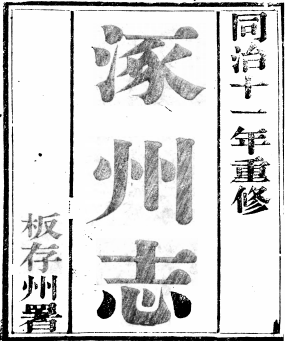 同治十一年重修
涿州志
板存州署